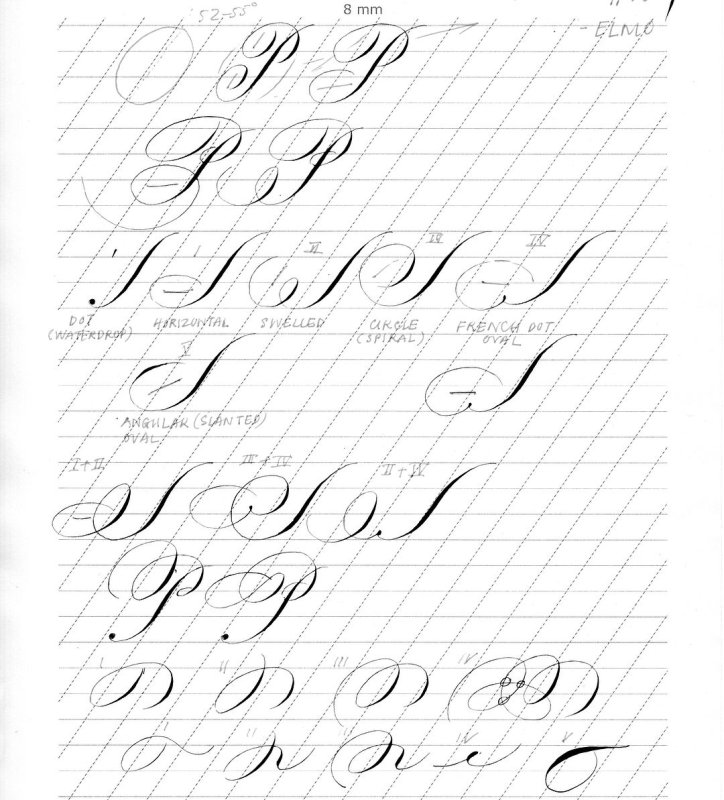 8 mm
52-55°
- ELMO
P P
P P
I II III IV
DOT HORIZONTAL SWELLED CIRCLE FRENCH DOT
(WATERDROP) (SPIRAL) OVAL
V
ANGULAR (SLANTED)
OVAL
I + II III + IV II + IV
P P
I II III IV
I II III IV V